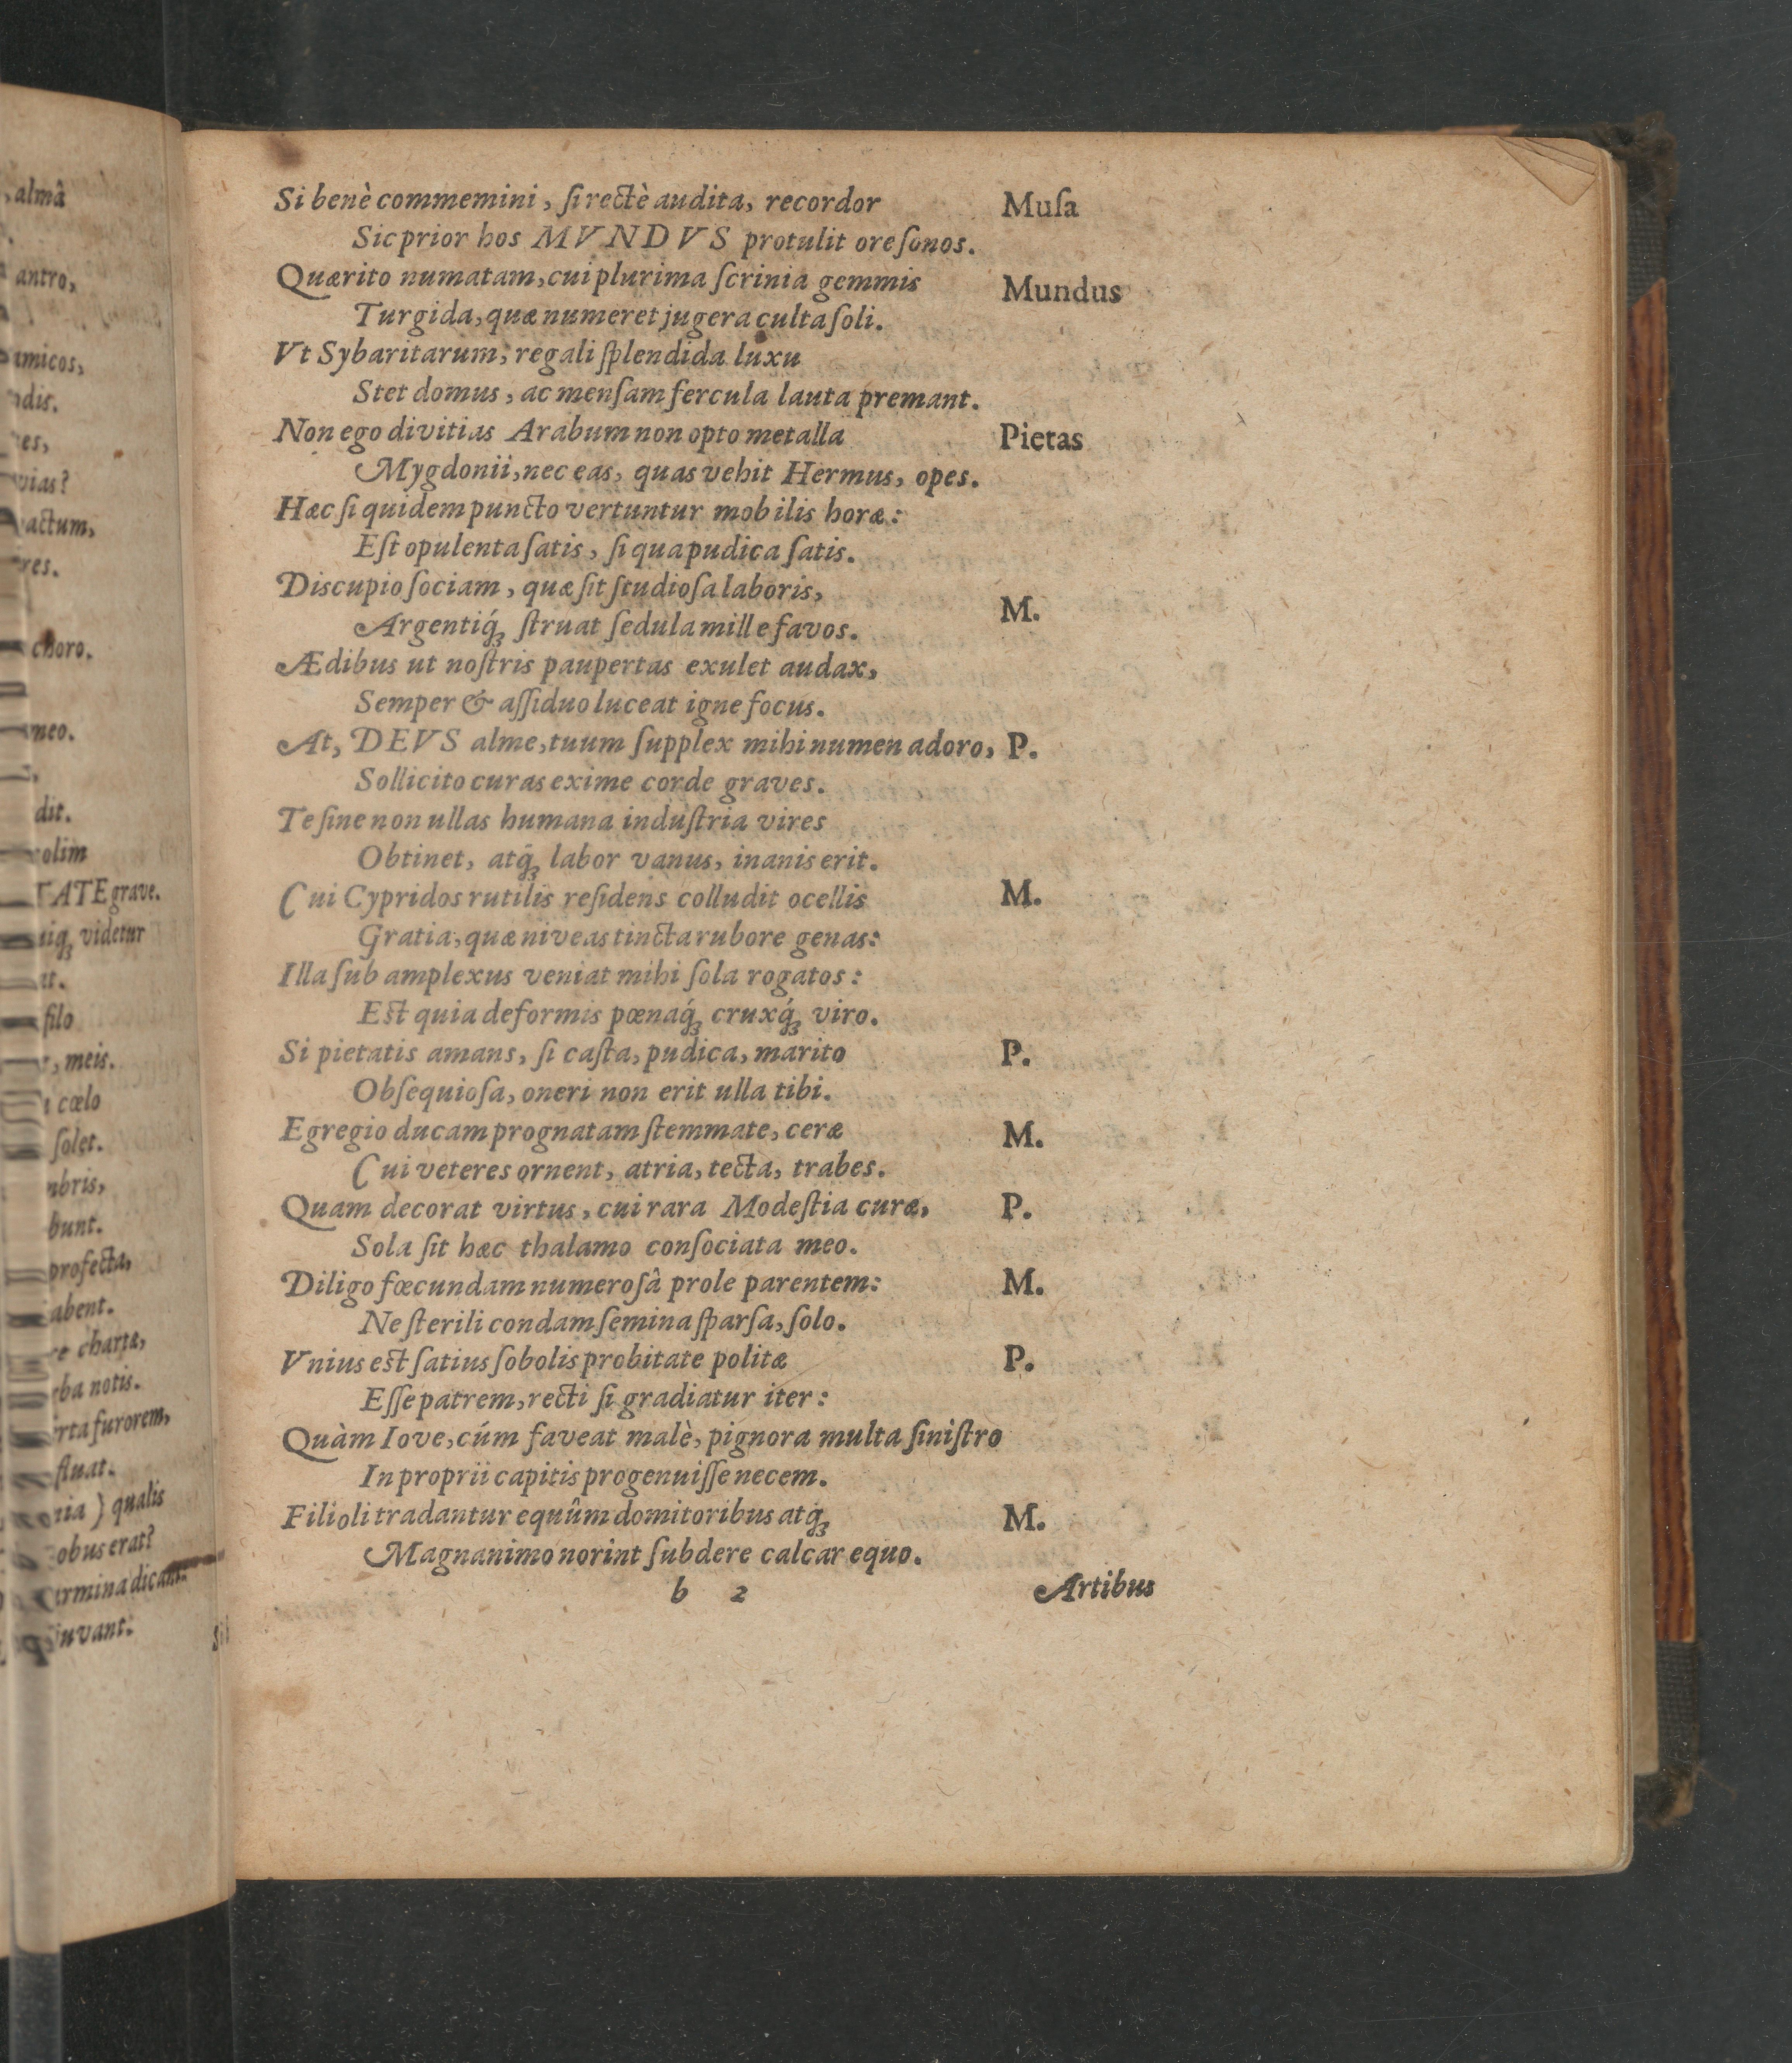 , almâ
antro,
amicos,
ndis.
es,
vias?
actum,
res.
choro.
meo.
dit.
olim
TATE grave.
iiq́ꝫ videtur
ut.
filo
, meis.
cœlo
solet.
mbris,
bunt.
profecta,
abent.
charta,
rba notis.
furorem,
fluat.
ria ) qualis
obus erat?
carmina dicant:
juvant.
Si benè commemini, ſi rectè audita, recordor Muſa
Sic prior hos MVNDVS protulit ore ſonos.
Quærito numatam, cui plurima ſcrinia gemmis Mundus
Turgida, quæ numeret jugera culta ſoli.
Vt Sybaritarum, regali ſplendida luxu
Stet domus, ac menſam fercula lauta premant.
Non ego divitias Arabum non opto metalla Pietas
Mygdonii, nec eas, quas vehit Hermus, opes.
Hæc ſi quidem puncto vertuntur mobilis horæ:
Eſt opulenta ſatis, ſi qua pudica ſatis.
Discupio ſociam, quæ ſit ſtudioſa laboris,
Argentiq́ꝫ ſtruat ſedula mille favos. M.
Ædibus ut noſtris paupertas exulet audax,
Semper & aſſiduo luceat igne focus.
At, DEVS alme, tuum ſupplex mihi numen adoro, P.
Sollicito curas exime corde graves.
Te ſine non ullas humana induſtria vires
Obtinet, atq́ꝫ labor vanus, inanis erit.
Cui Cypridos rutilis reſidens colludit ocellis M.
Gratia, quæ niveas tincta rubore genas:
Illa ſub amplexus veniat mihi ſola rogatos:
Eſt quia deformis pœnaq́ꝫ cruxq́ꝫ viro.
Si pietatis amans, ſi caſta, pudica, marito P.
Obſequioſa, oneri non erit ulla tibi.
Egregio ducam prognatam ſtemmate, ceræ M.
Cui veteres ornent, atria, tecta, trabes.
Quam decorat virtus, cui rara Modeſtia curæ, P.
Sola ſit hæc thalamo conſociata meo.
Diligo fœcundam numeroſâ prole parentem: M.
Ne ſterili condam ſemina ſparſa, ſolo.
Vnius eſt ſatius ſobolis probitate politæ P.
Eſſe patrem, recti ſi gradiatur iter:
Quàm Iove, cúm faveat malè, pignora multa ſiniſtro
In proprii capitis progenuiſſe necem.
Filioli tradantur equûm domitoribus atq́ꝫ M.
Magnanimo norint ſubdere calcar equo.
b 2 Artibus